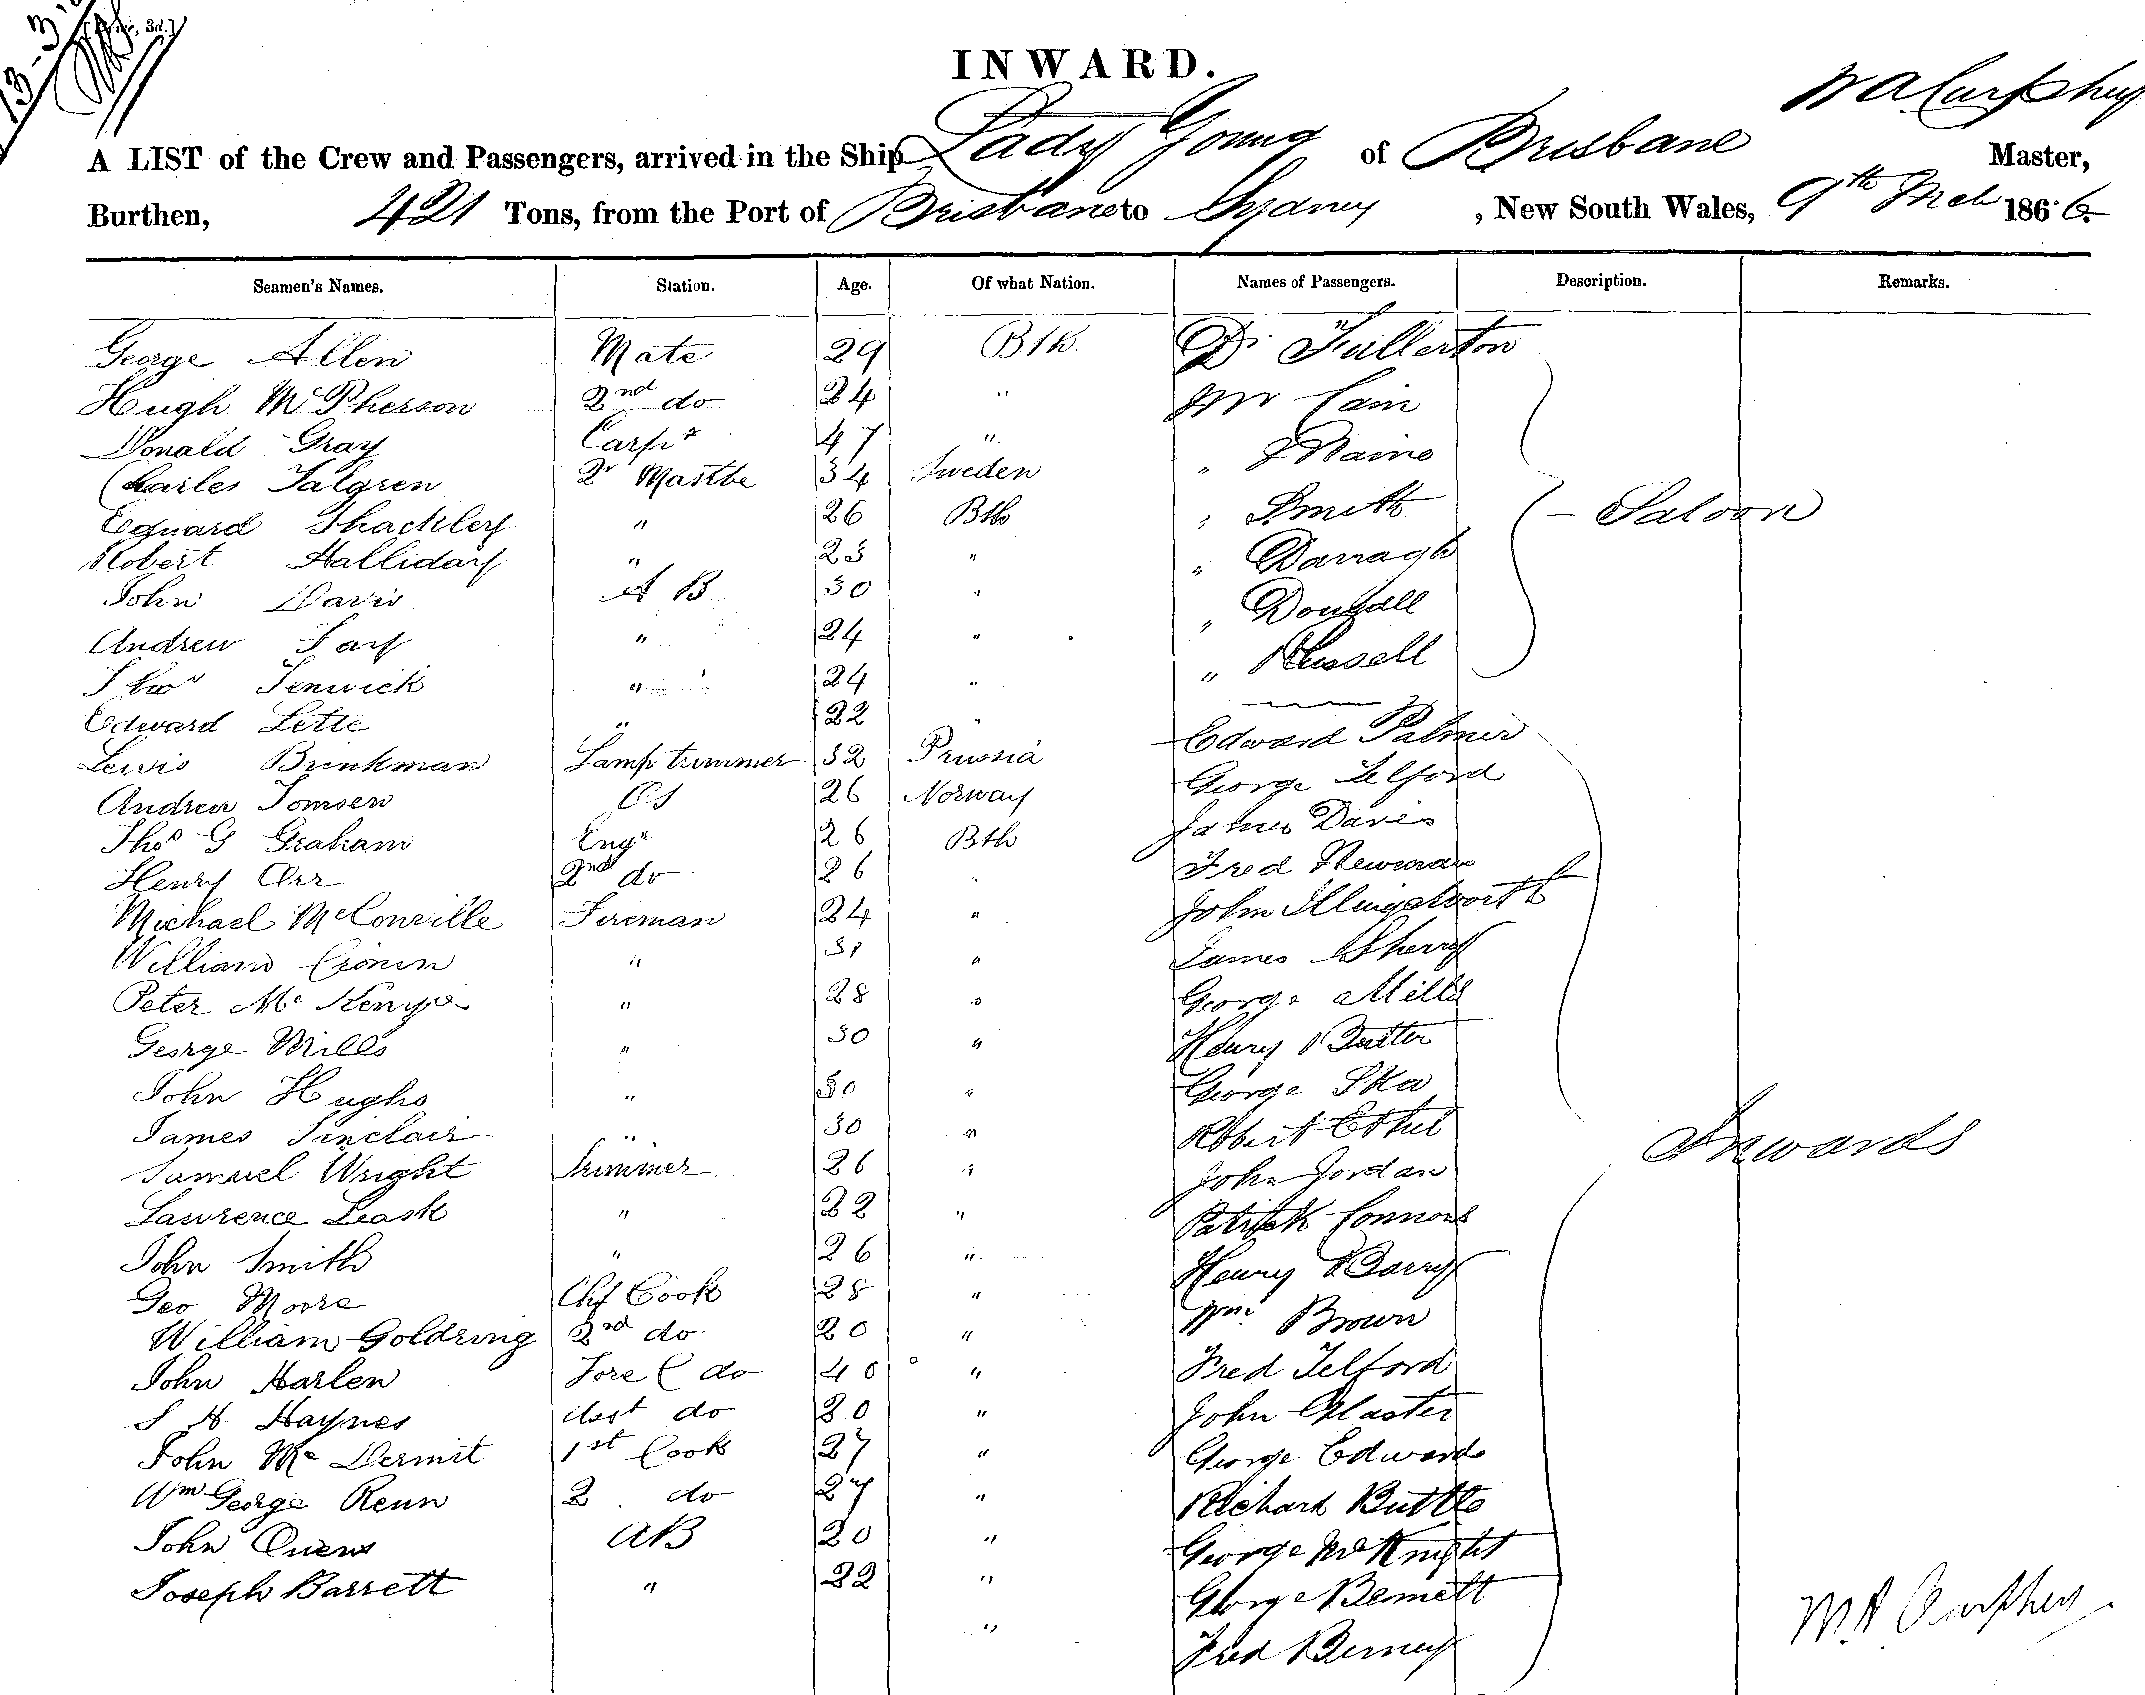 INWARD.
A LIST of the Crew and Passengers, arrived in the Ship Lady Young of Brisbane Master,
Burthen, 421 Tons, from the Port of Brisbane to Sydney, New South Wales, 9th Mch 1866
Seamen's Names. Station. Age. Of what Nation. Names of Passengers. Description. Remarks.
George Allen Mate 29 Bth Dr Fullerton
Hugh McPherson 2nd do 24 " Mr Cain
Donald Gray Carpr 47 " "
Charles Falgren Qr Mastbe 34 Sweden
Edquard Thackley " 26 Bth " Smith Saloon
Robert Halliday " 23 " " Darragh
John Davis A B 30 " " Dougall
Andrew Fay " 24 " " Russell
Thos Fenwick " 24 "
Edward Lette " 22 " Edward Palmer
Lewis Brinkman Lamp trimmer 32 Prussia George Telford
Andrew Tomsen OS 26 Norway James Davis
Thos G Graham Engr 26 Bth Fred Newman
Henry Orr 2nd do 26 " John Illingsworth
Michael McConville Fireman 24 " James Sherry
William Cronin " 31 " George Mills
Peter Mc Kenzie " 28 " Henry Butter
George Mills " 30 " George
John Hughs " 30 " Robert
James Sinclair " 30 " John Jordan Inwards
Samuel Wright Trimmer 26 " Patrick Connors
Lawrence Leask " 22 " Henry Barry
John Smith " 26 " Wm Brown
Geo Moore Chf Cook 28 " Fred Telford
William Goldring 2nd do 20 " John Plaster
John Harlen Fore C do 40 " George Edwards
S H Haynes Asst do 20 " Richard Buttle
John Mc Dermit 1st Cook 27 " George McKnight
Wm George Renn 2 do 27 " George Bennett
John Owens AB 20 " Fred Berney
Joseph Barrett " 22 "
"